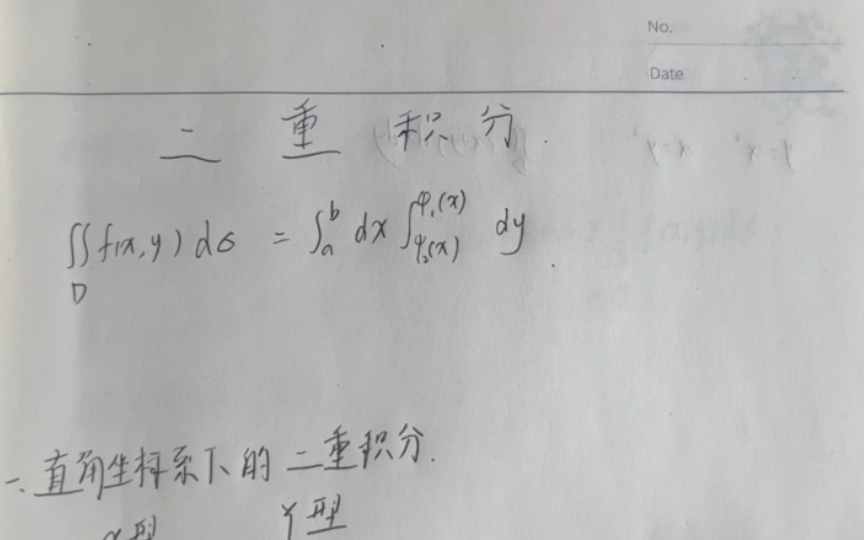 No.
Date
二重积分.
∬f(x,y)dσ = ∫ₐᵇ dx ∫_{φ₂(x)}^{φ₁(x)} dy.
D
一.直角坐标系下的二重积分.
X型 Y型